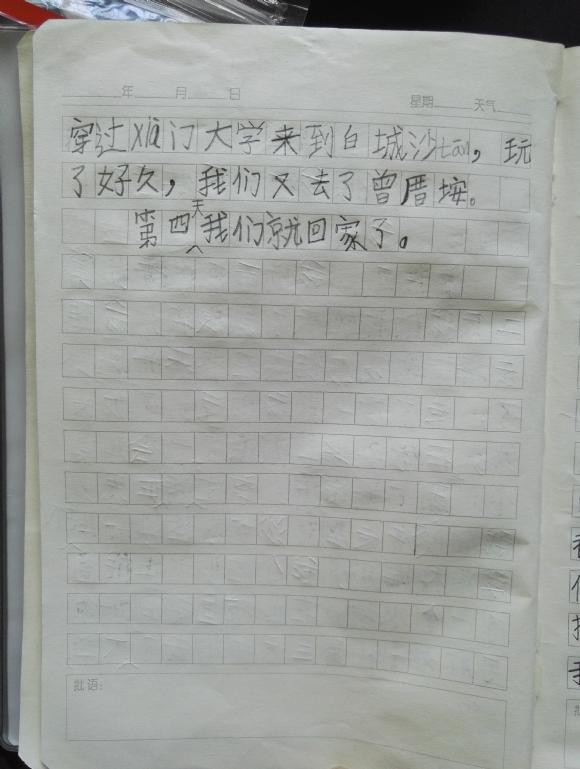 年 月 日 星期 天气
穿过xià门大学来到白城沙tān，玩
了好久，我们又去了曾厝垵。
第四天我们就回家了。
批语：